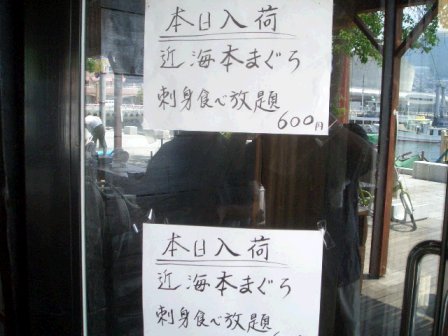 本日入荷
近海本まぐろ
刺身食べ放題
600円
本日入荷
近海本まぐろ
刺身食べ放題